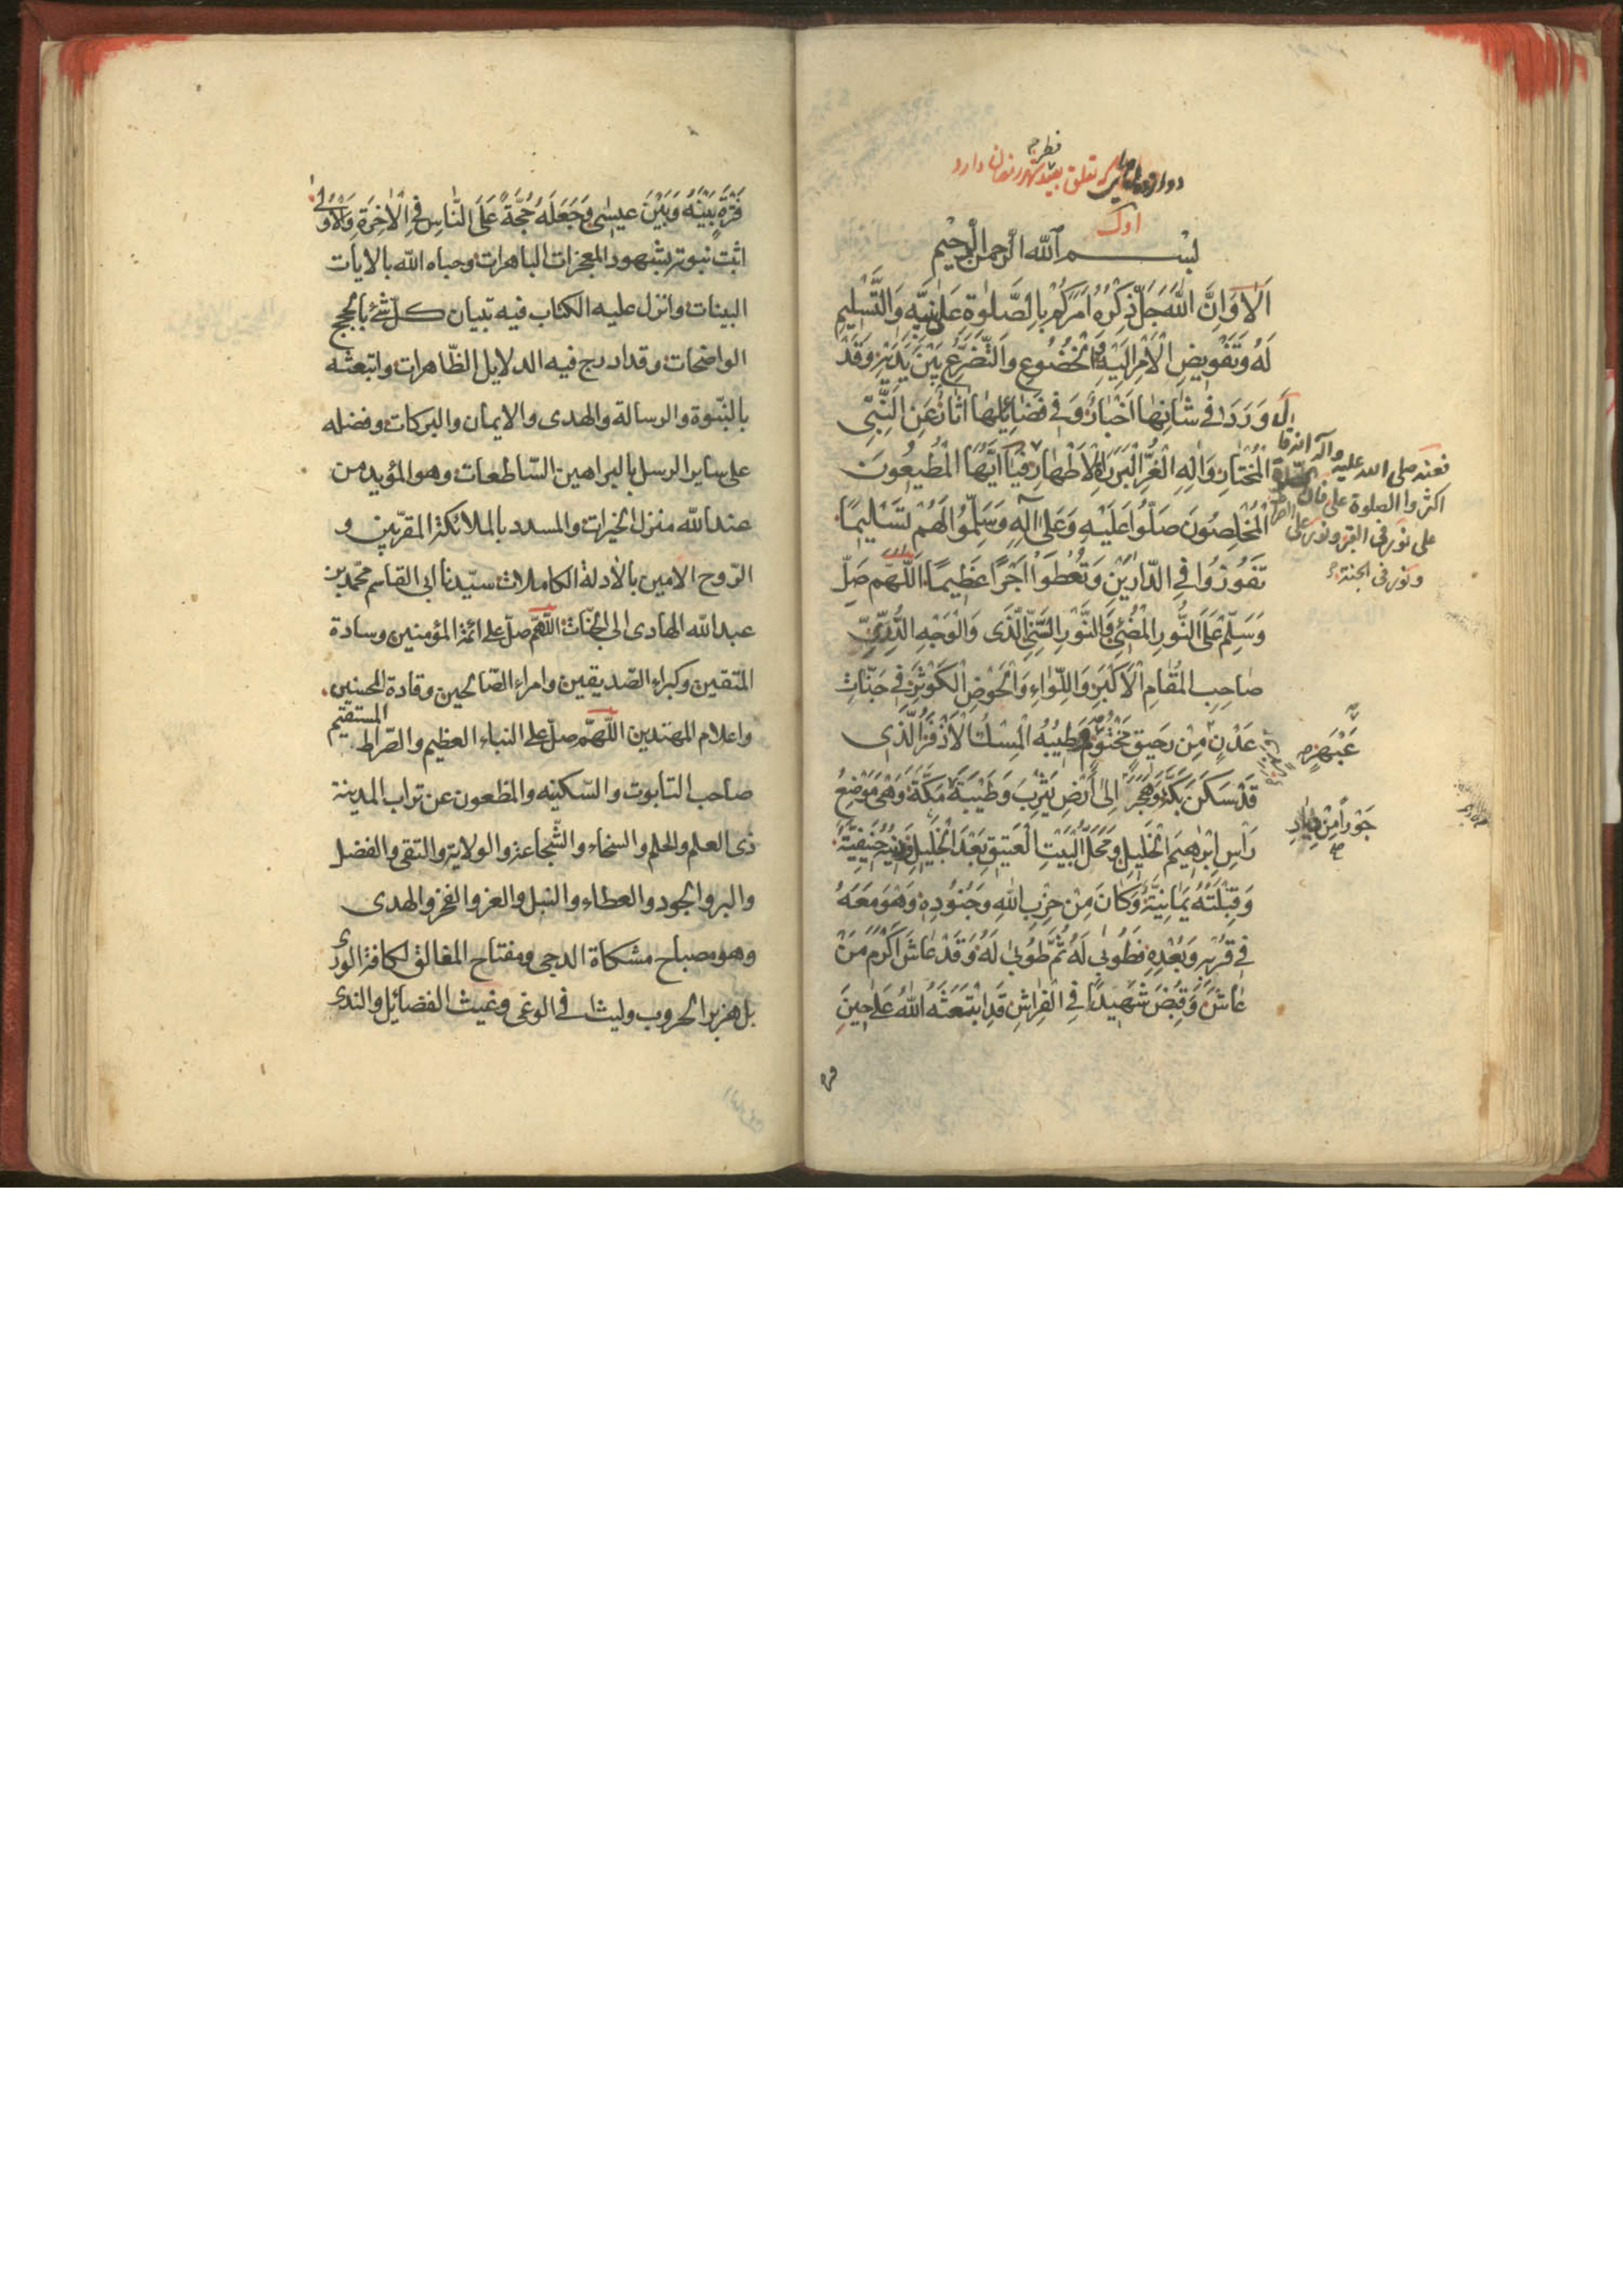 فطر
که تعلق بعید شهر رمضان دارد
اول
بسم الله الرحمن الرحیم
اَلا وَاِنَّ اللّٰهَ جَلَّ ذِکْرُهُ اَمَرَکُمْ بِالصَّلوٰةِ عَلیٰ نَبِیِّهِ وَالتَّسْلِیمِ
لَهُ وَتَفْوِیضِ الْاَمْرِ اِلَیْهِ وَالْخُضُوعِ وَالتَّضَرُّعِ بَیْنَ یَدَیْهِ وَقَدْ
وَرَدَ فی شٰانِهٰا اَخْبٰارٌ وَفی فَضٰائِلِهٰا اٰثٰارٌ عَنِ النَّبِیِّ
الْمُخْتٰارِ وَاٰلِهِ الْغُرِّ الْبَرَرَةِ الْاَطْهٰارِ فَیٰا اَیُّهَا الْمُطِیعُونَ
الْمُخْلِصُونَ صَلُّوا عَلَیْهِ وَعَلیٰ اٰلِهِ وَسَلِّمُوا لَهُمْ تَسْلِیمًا
تَفُوزُوا فِی الدّٰارَیْنِ وَتُعْطَوْا اَجْرًا عَظِیمًا اَللّٰهُمَّ صَلِّ
وَسَلِّمْ عَلَی النُّورِ الْمُضِیئِ وَالنُّورِ السَّنِیِّ الَّذی وَالْوَجْهِ الدُّرِّیِّ
صٰاحِبِ الْمَقٰامِ الْاَکْبَرِ وَاللِّوٰاءِ وَالْحَوْضِ الْکَوْثَرِ فی جَنّٰاتِ
عَدْنٍ مِنْ رَحیقٍ مَخْتُومٍ وَطِیبُهُ الْمِسْكُ الْاَذْفَرُ الَّذی
قَدْ سَکَنَ بَکَّةَ وَهٰجَرَ اِلیٰ اَرْضِ یَثْرِبَ وَطَیْبَةَ مَکَّةَ وَهِیَ مَوْضِعُ
رَاْسِ اِبْرٰهِیمَ الْخَلیلِ وَمَحَلُّ الْبَیْتِ الْعَتیقِ بَعْدَ الْجَلیلِ وَدینُهُ حَنیفِیَّةٌ
وَقِبْلَتُهُ یَمٰانِیَّةٌ وَکٰانَ مِنْ حِزْبِ اللّٰهِ وَجُنُودِهِ وَهُوَ مَعَهُ
فی قُرْبِهِ وَبُعْدِهِ فَطُوبیٰ لَهُ ثُمَّ طُوبیٰ لَهُ وَقَدْ عٰاشَ اَکْرَمَ مَنْ
عٰاشَ وَقُبِضَ شَهیدًا فِی الْفِرٰاشِ قَدِ ابْتَعَثَهُ اللّٰهُ عَلیٰ حینِ
فعنه صلی الله علیه وآله انه قال
اکثروا الصلوة علی فان الصلوة
علی نور فی القبر ونور علی الصراط
ونور فی الجنة
عَبْهَرٍ
جَوْرًا مِنْ
فتره
فَتْرَةٍ بَیْنَهُ وَبَیْنَ عیسیٰ وَجَعَلَهُ حُجَّةً عَلَی النّٰاسِ فِی الْاٰخِرَةِ وَالْاُولیٰ
اثبت نبوته بشهود المعجزات الباهرات وحباه الله بالایات
البینات وانزل علیه الکتاب فیه تبیان کل شئ بالحجج
الواضحات وقد ادرج فیه الدلایل الظّاهرات وابتعثه
بالنبّوة والرسالة والهدی والایمان والبرکات وفضله
علی سایر الرسل بالبراهین السّاطعات وهو المؤید من
عند الله منزل الخیرات والمسدد بالملائکة المقرّبین و
الرّوح الامین بالأدلة الکاملات سیّدنا ابی القاسم محمّد بن
عبد الله الهادی الی الجنّات اللّهمّ صلّ علی ائمة المؤمنین وسادة
المتقین وکبراء الصّدیقین وامراء الصّالحین وقادة المحسنین
واعلام المهتدین اللّهمّ صلّ علی النباء العظیم والصّراط المستقیم
صاحب التابوت والسّکینه والمظعون عن تراب المدینة
ذی العلم والحلم والسخاء والشّجاعة والولایة والتقی والفضل
والبر والجود والعطاء والنبل والعز والفخر والهدی
وهو مصباح مشکاة الدجی ومفتاح المغالق لکافة الوری
بل هزبر الحروب ولیثا فی الوغی وغیث الفضائل والندی